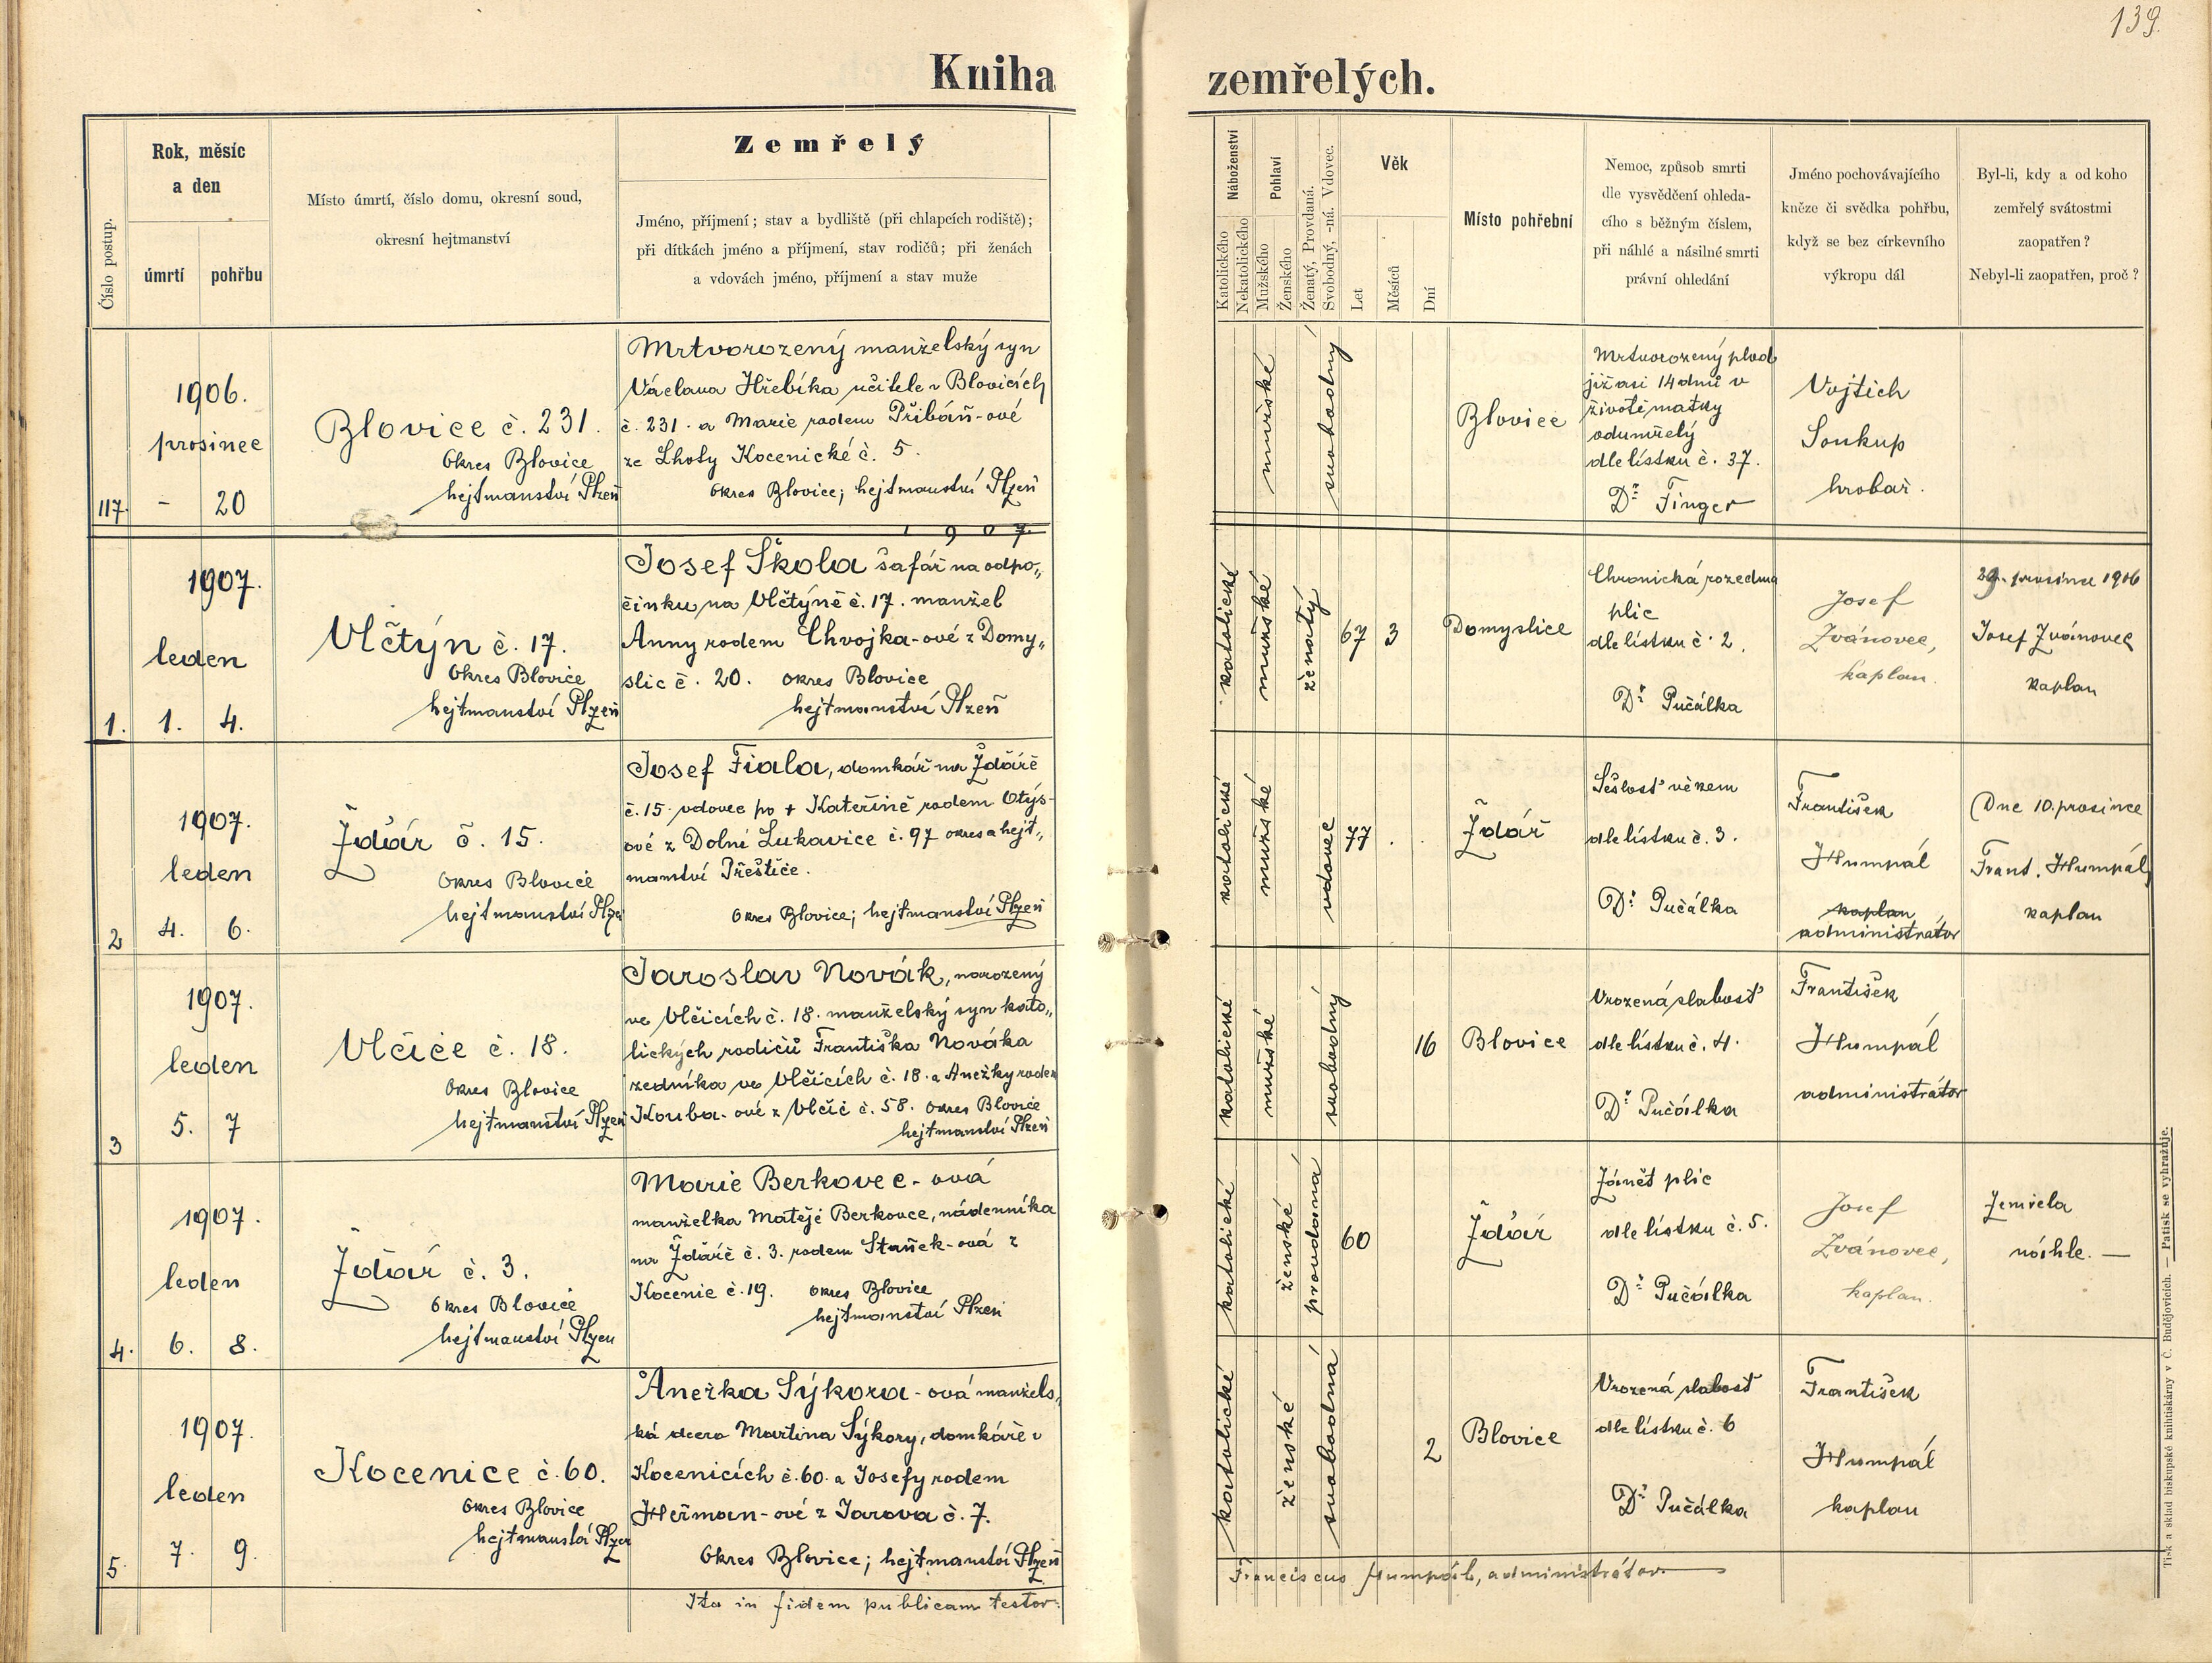 139.
Kniha zemřelých.
Číslo postup.
Rok, měsíc
a den
úmrtí
pohřbu
Místo úmrtí, číslo domu, okresní soud,
okresní hejtmanství
Zemřelý
Jméno, příjmení; stav a bydliště (při chlapcích rodiště);
při dítkách jméno a příjmení, stav rodičů; při ženách
a vdovách jméno, příjmení a stav muže
Náboženství
Katolického
Nekatolického
Pohlaví
Mužského
Ženského
Ženatý, Provdaná.
Svobodný, -ná. Vdovec.
Věk
Let
Měsíců
Dní
Místo pohřební
Nemoc, způsob smrti
dle vysvědčení ohleda-
cího s běžným číslem,
při náhlé a násilné smrti
právní ohledání
Jméno pochovávajícího
kněze či svědka pohřbu,
když se bez církevního
výkropu dál
Byl-li, kdy a od koho
zemřelý svátostmi
zaopatřen?
Nebyl-li zaopatřen, proč?
117.
1906.
prosinec
- 20
Blovice č. 231.
Okres Blovice
hejtmanství Plzeň
Mrtvorozený manželský syn
Václava Hřebíka učitele v Blovicích
č. 231. a Marie rodem Přibáň-ové
ze Lhoty Kocenické č. 5.
Okres Blovice; hejtmanství Plzeň
mužské
svobodný
Blovice
Mrtvorozený plod
již asi 14 dnů v
životě matky
odumřelý
dle lístku č. 37.
Dr Finger
Vojtěch
Soukup
hrobař.
1907.
1.
1907.
leden
1. 4.
Vlčtýn č. 17.
Okres Blovice
hejtmanství Plzeň
Josef Škola šafář na odpo„
činku na Vlčtýně č. 17. manžel
Anny rodem Chvojka-ové z Domy„
slic č. 20. okres Blovice
hejtmanství Plzeň
katolické
mužské
ženatý
67 3
Domyslice
Chronická rozedma
plic
dle lístku č. 2.
Dr Pučálka
Josef
Zvánovec,
kaplan.
29. prosince 1906
Josef Zvánovec
kaplan
2
1907.
leden
4. 6.
Ždár č. 15.
Okres Blovice
hejtmanství Plzeň
Josef Fiala, domkář na Ždáře
č. 15 vdovec po + Kateřině rodem Otýs-
ové z Dolní Lukavice č. 97 okres a hejt„
manství Přeštice.
Okres Blovice; hejtmanství Plzeň
katolické
mužské
vdovec
77 . .
Ždár
Sešlosť věkem
dle lístku č. 3.
Dr Pučálka
František
Humpál
kaplan
administrátor
Dne 10. prosince
Frant. Humpál,
kaplan
3
1907.
leden
5. 7
Vlčice č. 18.
Okres Blovice
hejtmanství Plzeň
Jaroslav Novák, narozený
ve Vlčicích č. 18. manželský syn kato„
lických rodičů Františka Nováka
zedníka ve Vlčicích č. 18. a Anežky rodem
Kouba-ové z Vlčic č. 58. Okres Blovice
hejtmanství Plzeň
katolické
mužské
svobodný
16
Blovice
Vrozená slabosť
dle lístku č. 4.
Dr Pučálka
František
Humpál
administrátor
4.
1907.
leden
6. 8.
Ždár č. 3.
Okres Blovice
hejtmanství Plzeň
Marie Berkovec-ová
manželka Matěje Berkovce, nádenníka
na Ždáře č. 3. rodem Staněk-ová z
Kocenic č. 19. okres Blovice
hejtmanství Plzeň
katolické
ženské
provdaná
60
Ždár
Zánět plic
dle lístku č. 5.
Dr Pučálka
Josef
Zvánovec,
kaplan.
Zemřela
náhle. —
5.
1907.
leden
7. 9.
Kocenice č. 60.
Okres Blovice
hejtmanství Plzeň
Anežka Sýkora-ová manžels„
ká dcera Martina Sýkory, domkáře v
Kocenicích č. 60. a Josefy rodem
Heřman-ové z Jarova č. 7.
Okres Blovice; hejtmanství Plzeň
katolické
ženské
svobodná
2
Blovice
Vrozená slabosť
dle lístku č. 6
Dr Pučálka
František
Humpál
kaplan
Ita in fidem publicam testor:
Franciscus Humpál, administrátor.
Tisk a sklad biskupské knihtiskárny v Č. Budějovicích. — Patisk se vyhražuje.